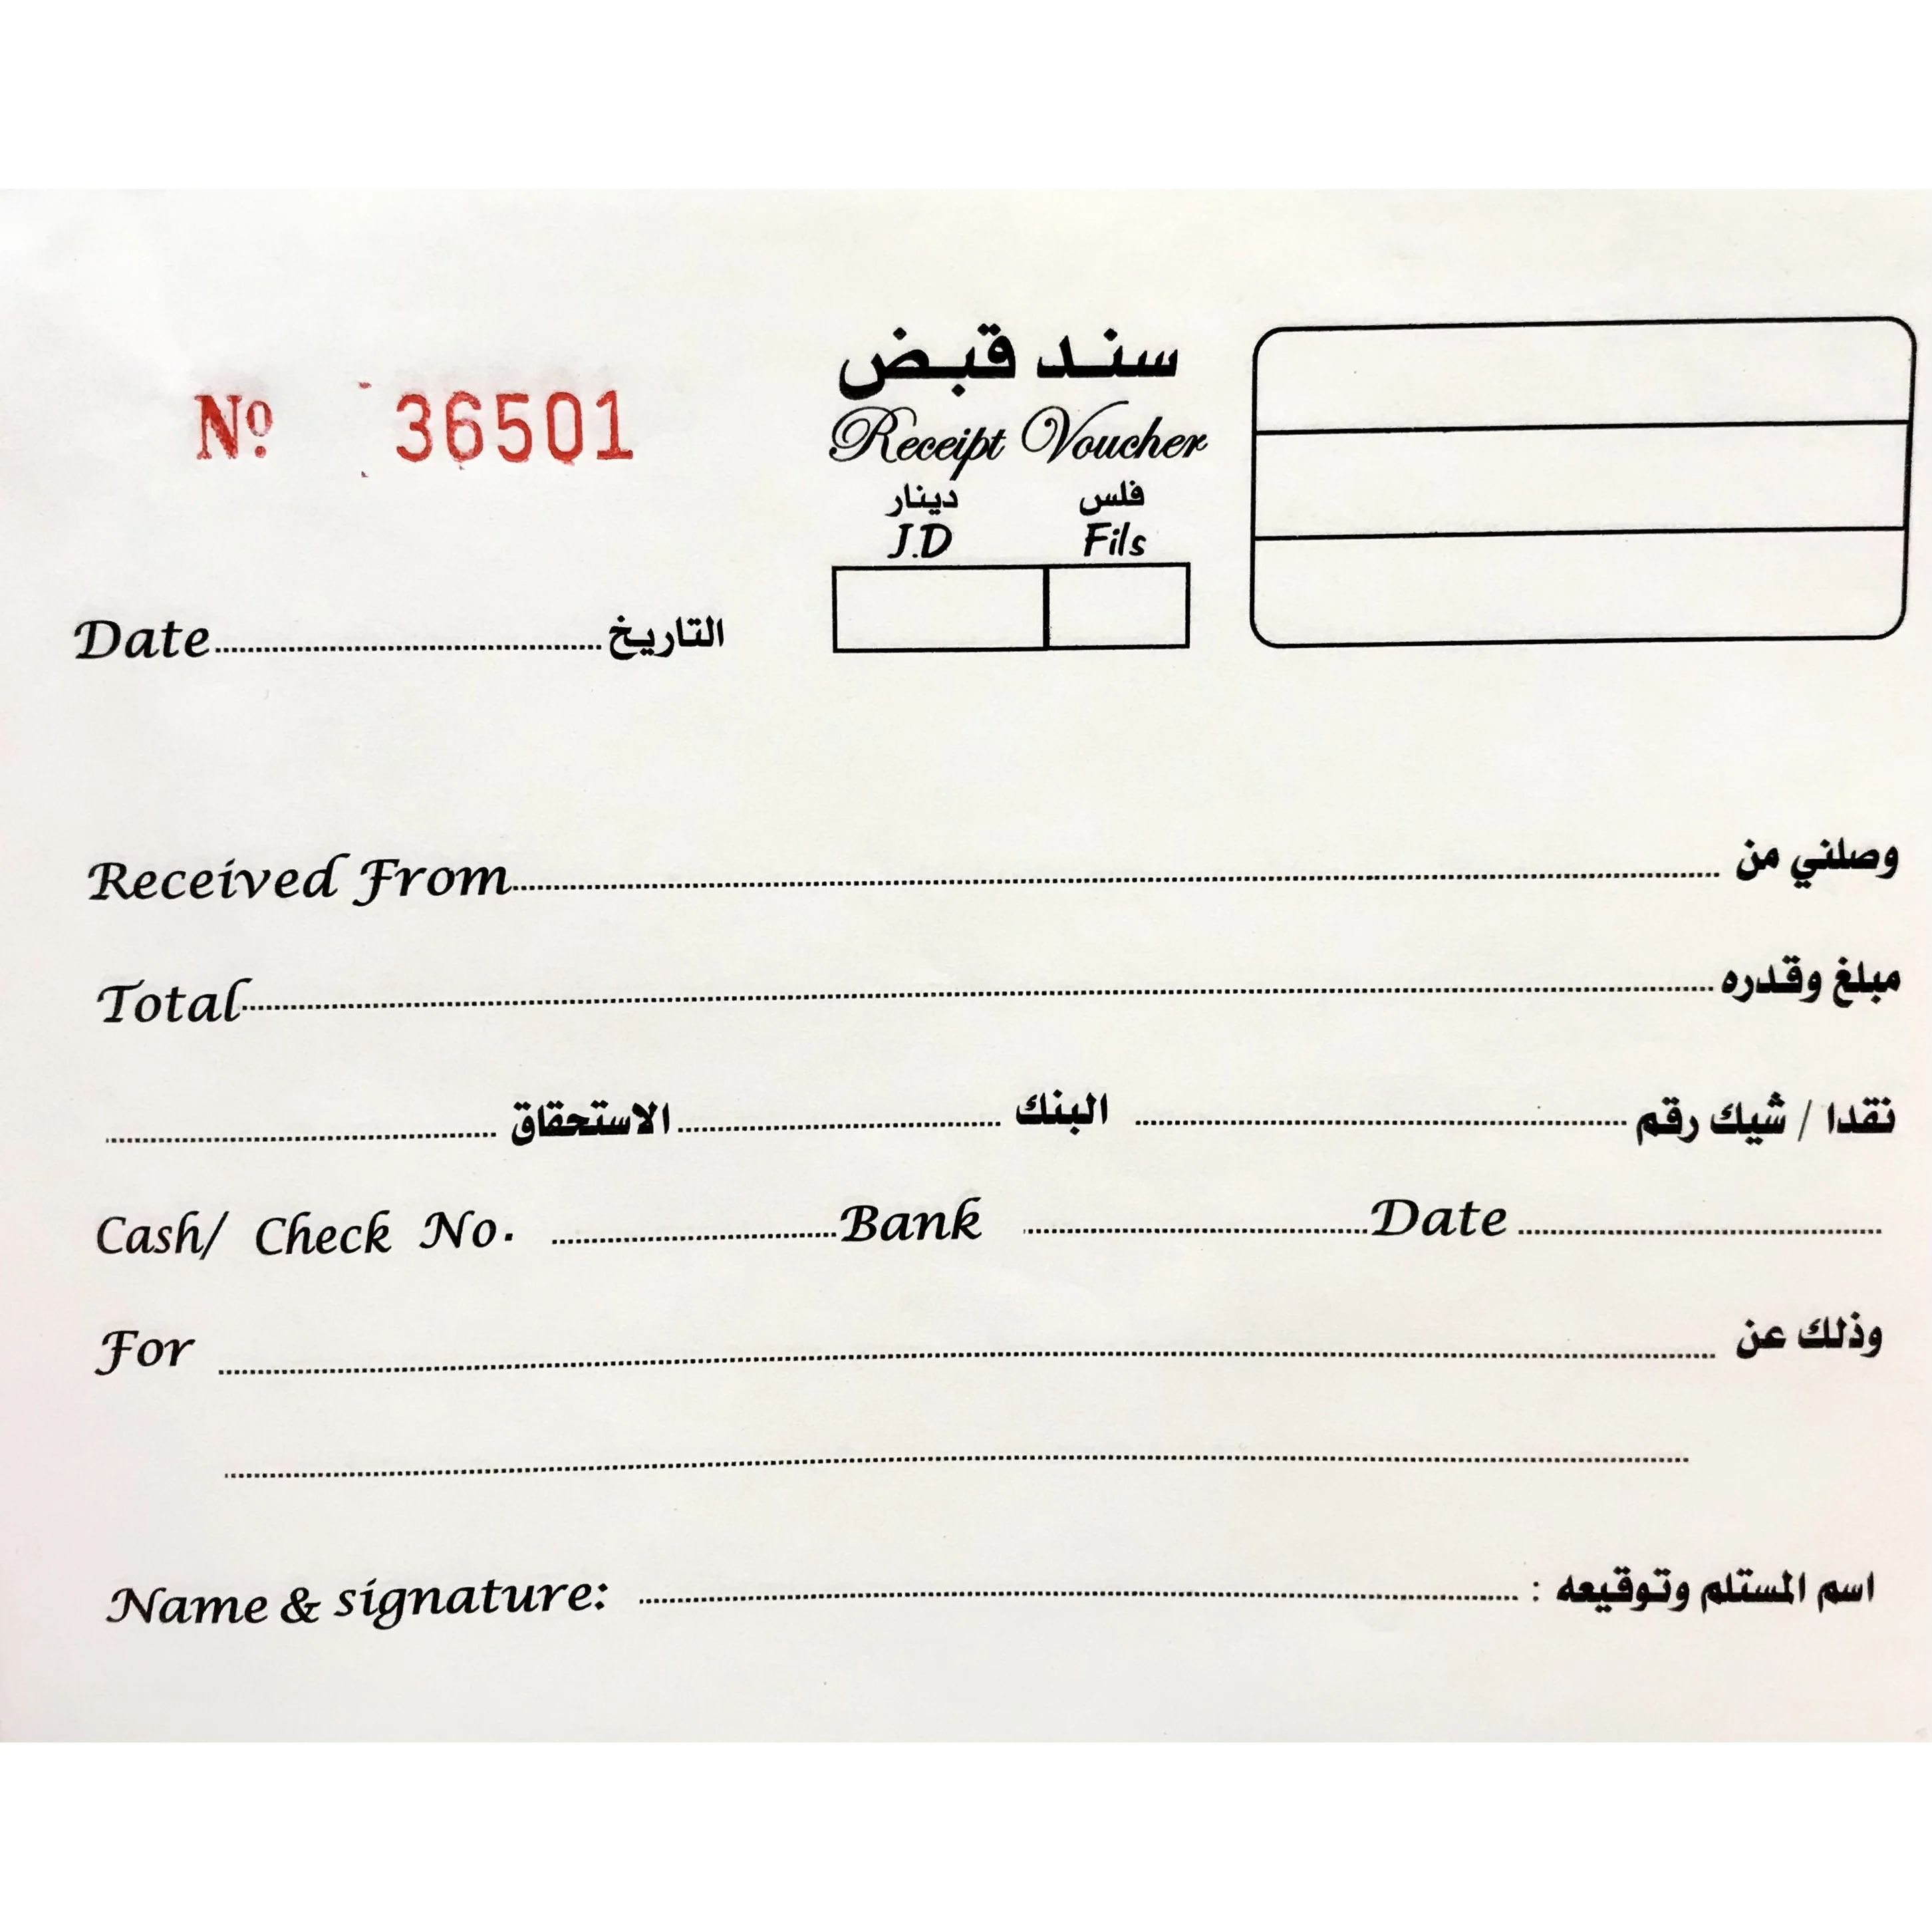 سند قبض
Nº 36501
Receipt Voucher
دينار فلس
J.D Fils
Date التاريخ
Received From وصلني من
Total مبلغ وقدره
نقدا / شيك رقم البنك الاستحقاق
Cash/ Check No. Bank Date
For وذلك عن
Name & signature: اسم المستلم وتوقيعه :